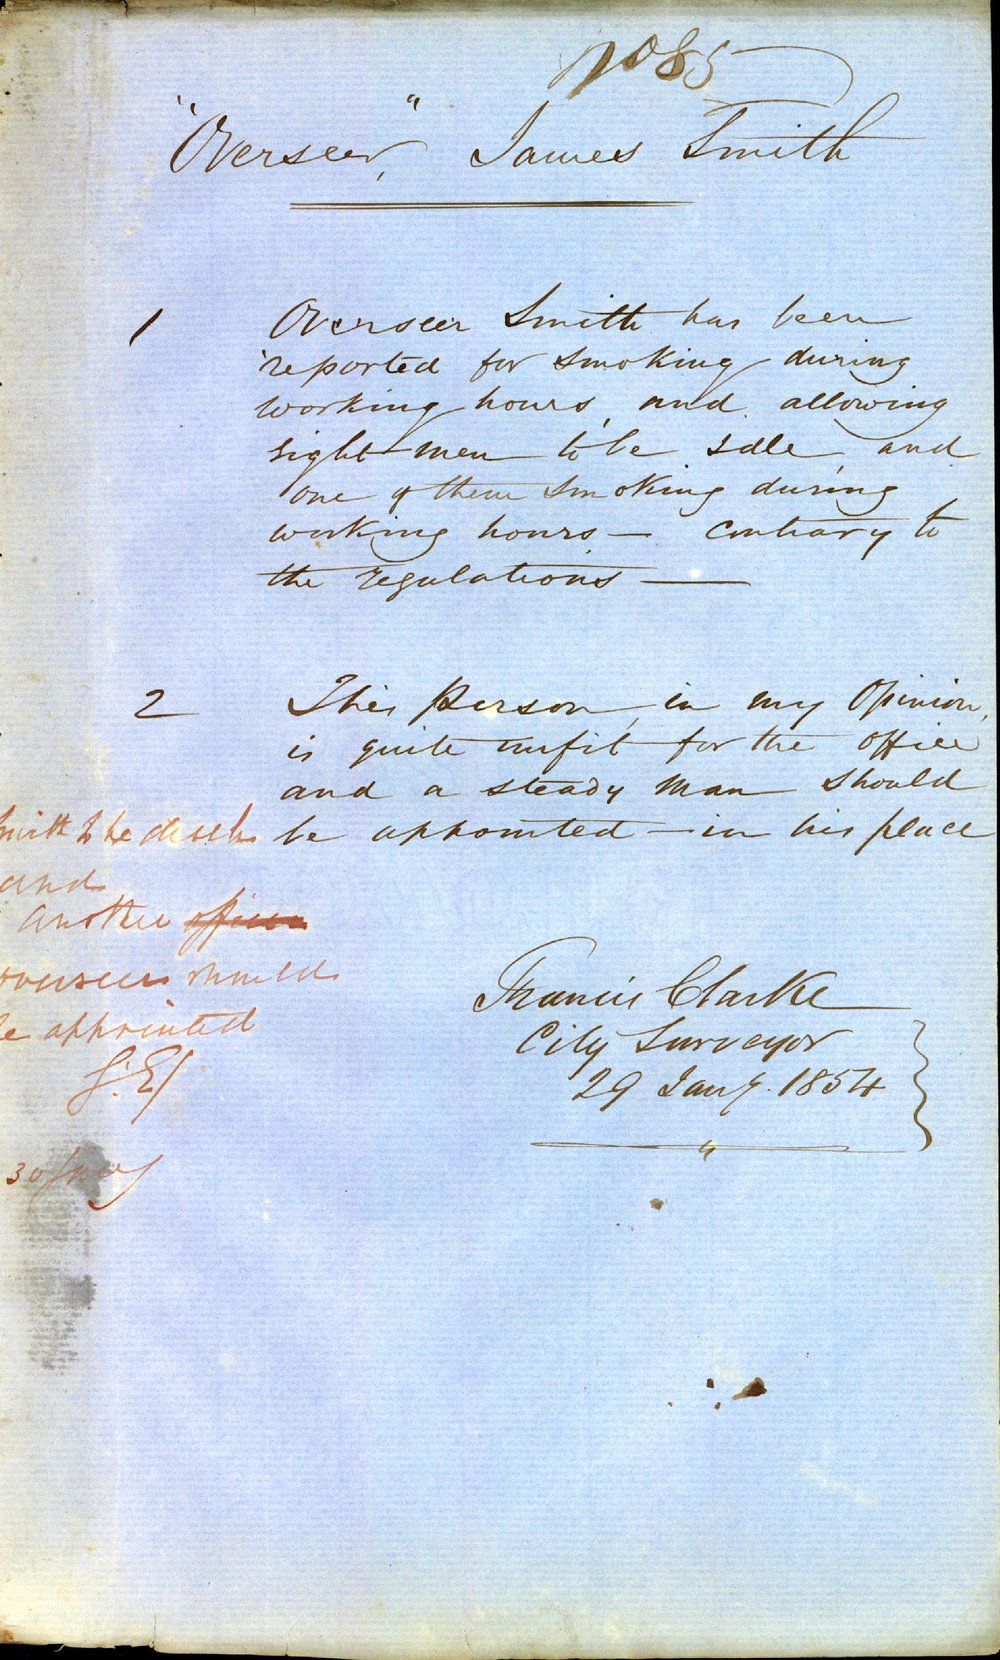 No 85
"Overseer," James Smith
1 Overseer Smith has been
reported for smoking during
working hours, and allowing
eight men to be idle, and
one of them smoking during
working hours — contrary to
the regulations —
2 This person, in my opinion,
is quite unfit for the office
and a steady man should
be appointed in his place
Smith to be disch
and
another officer
overseer should
be appointed
30 Jany
Francis Clarke
City Surveyor
29 Jany. 1854